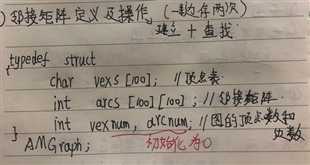 ) 邻接矩阵 定义及操作。(一数边存两次)
建立 + 查找
typedef struct
char vexs [100]; //顶点表
int arcs [100][100]; //邻接矩阵
int vexnum, arcnum; //图的顶点数和
边数
} AMGraph;
初始化为0